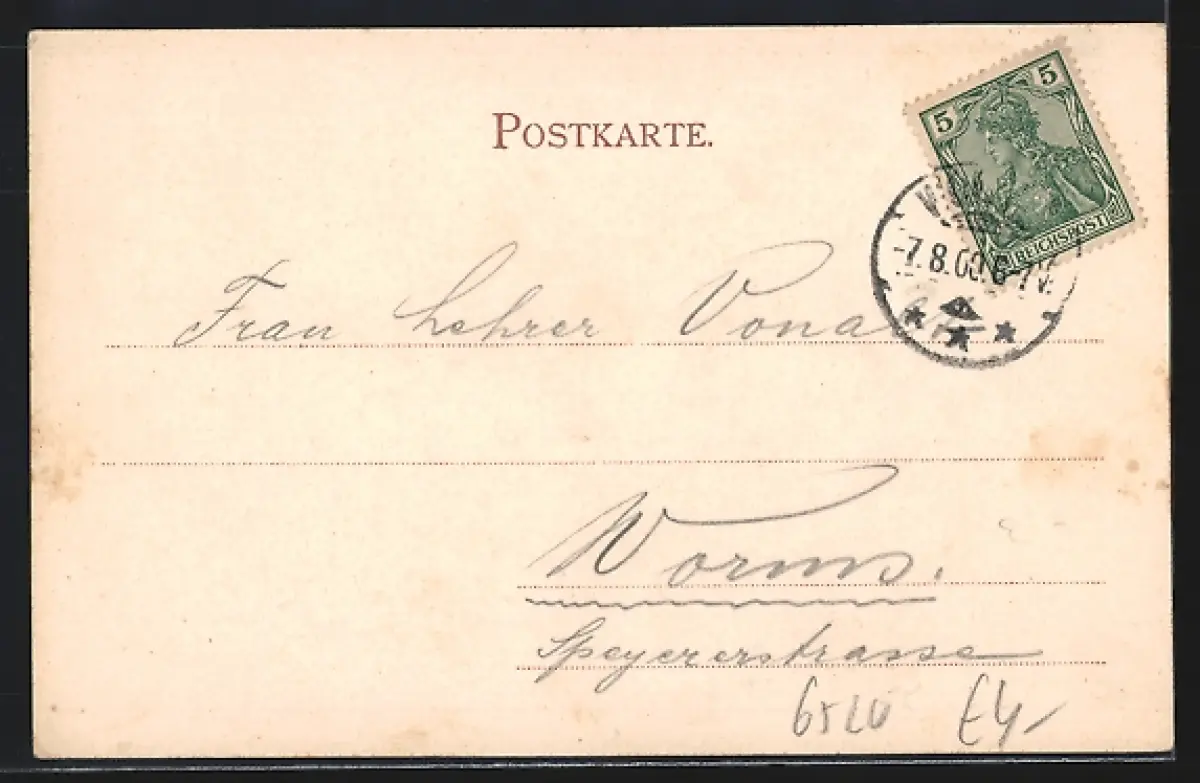 POSTKARTE.
5 5
REICHSPOST
-7.8.00. 6-7N.
Frau Lehrer
Worms.
Speyererstrasse